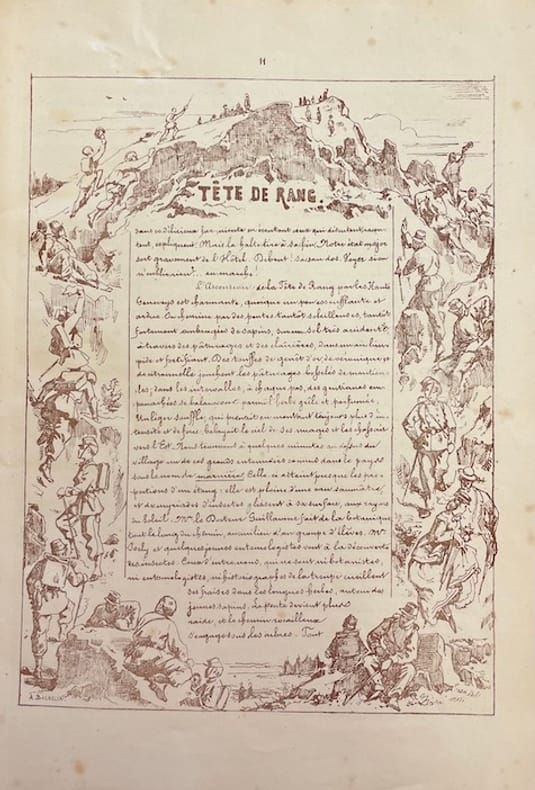 11
TÊTE DE RANG.
dans ce délicieux far-niente en écoutant ceux qui discutent, racon-
tent, expliquent. Mais la halte tire à sa fin. Notre état major
sort gravement de l'Hôtel. Debout! Sac au dos. Voyez si on
n'oublie rien? en marche!
L'Ascension de la Tête de Rang par les Hauts
Geneveys est charmante, quoique un peu essoufflante et
ardue. On chemine par des pentes tantôt rocailleuses, tantôt
fortement ombragées de sapins, sur un sol très accidenté
à travers des pâturages et des clairières, dans un air lim-
pide et fortifiant. Des touffes de genêt d'or, de véroniques
jonchent les pâturages
dans les intervalles, à chaque pas, des gentianes
se balancent parmi l'herbe grêle et parfumée.
Un léger souffle, qui prenait en montant toujours plus d'in-
tensité et de force balayait le ciel de ses nuages et les chassait
vers l'Est. Nous trouvons à quelques minutes au dessus du
village un de ces grands entonnoirs connus dans le pays
sous le nom de marnière. Celle-ci atteint presque les pro-
portions d'un étang: elle est pleine d'une eau saumâtre,
et des myriades d'insectes glissent à sa surface, aux rayons
du Soleil. Mr. le Docteur Guillaume fait de la botanique
tout le long du chemin, au milieu d'un groupe d'élèves. Mr.
et quelques jeunes entomologistes vont à la découverte
des insectes. Ceux d'entre nous, qui ne sont ni botanistes,
ni entomologistes, ni historiographes de la troupe cueillent
des fraises dans les longues herbes, autour des
jeunes sapins. La pente devient plus
raide, et le chemin rocailleux
s'engage sous les arbres. Tout
A. BACHELIN